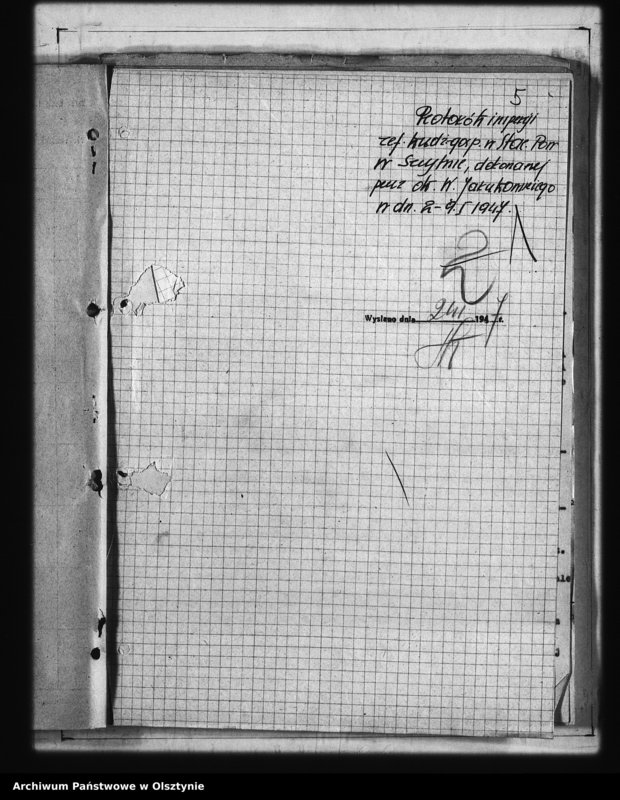 5
Protokół inspekcji
ref. budż-gosp. w Star. Pow
w Szczytnie, dokonanej
przez ob. W. Jakubowskiego
w dn. 2-9/I 1947.
2
Wysłano dnia 2 III 1947 r.
Archiwum Państwowe w Olsztynie